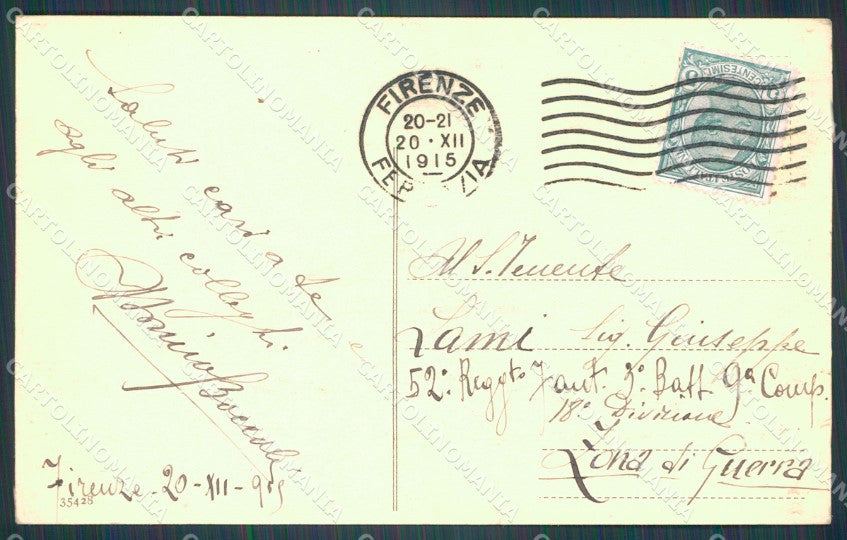 Saluti cari a te e
agli altri colleghi.
Firenze - 20 - XII - 915
35428
FIRENZE
20-21
20 · XII
1915
FERROVIA
CENTESIMI
Al S. Tenente
Lami Sig. Giuseppe
52° Reggto Fant. 3° Batt. 9a Comp.
18a Divisione
Zona di Guerra
CARTOLINOMANIA